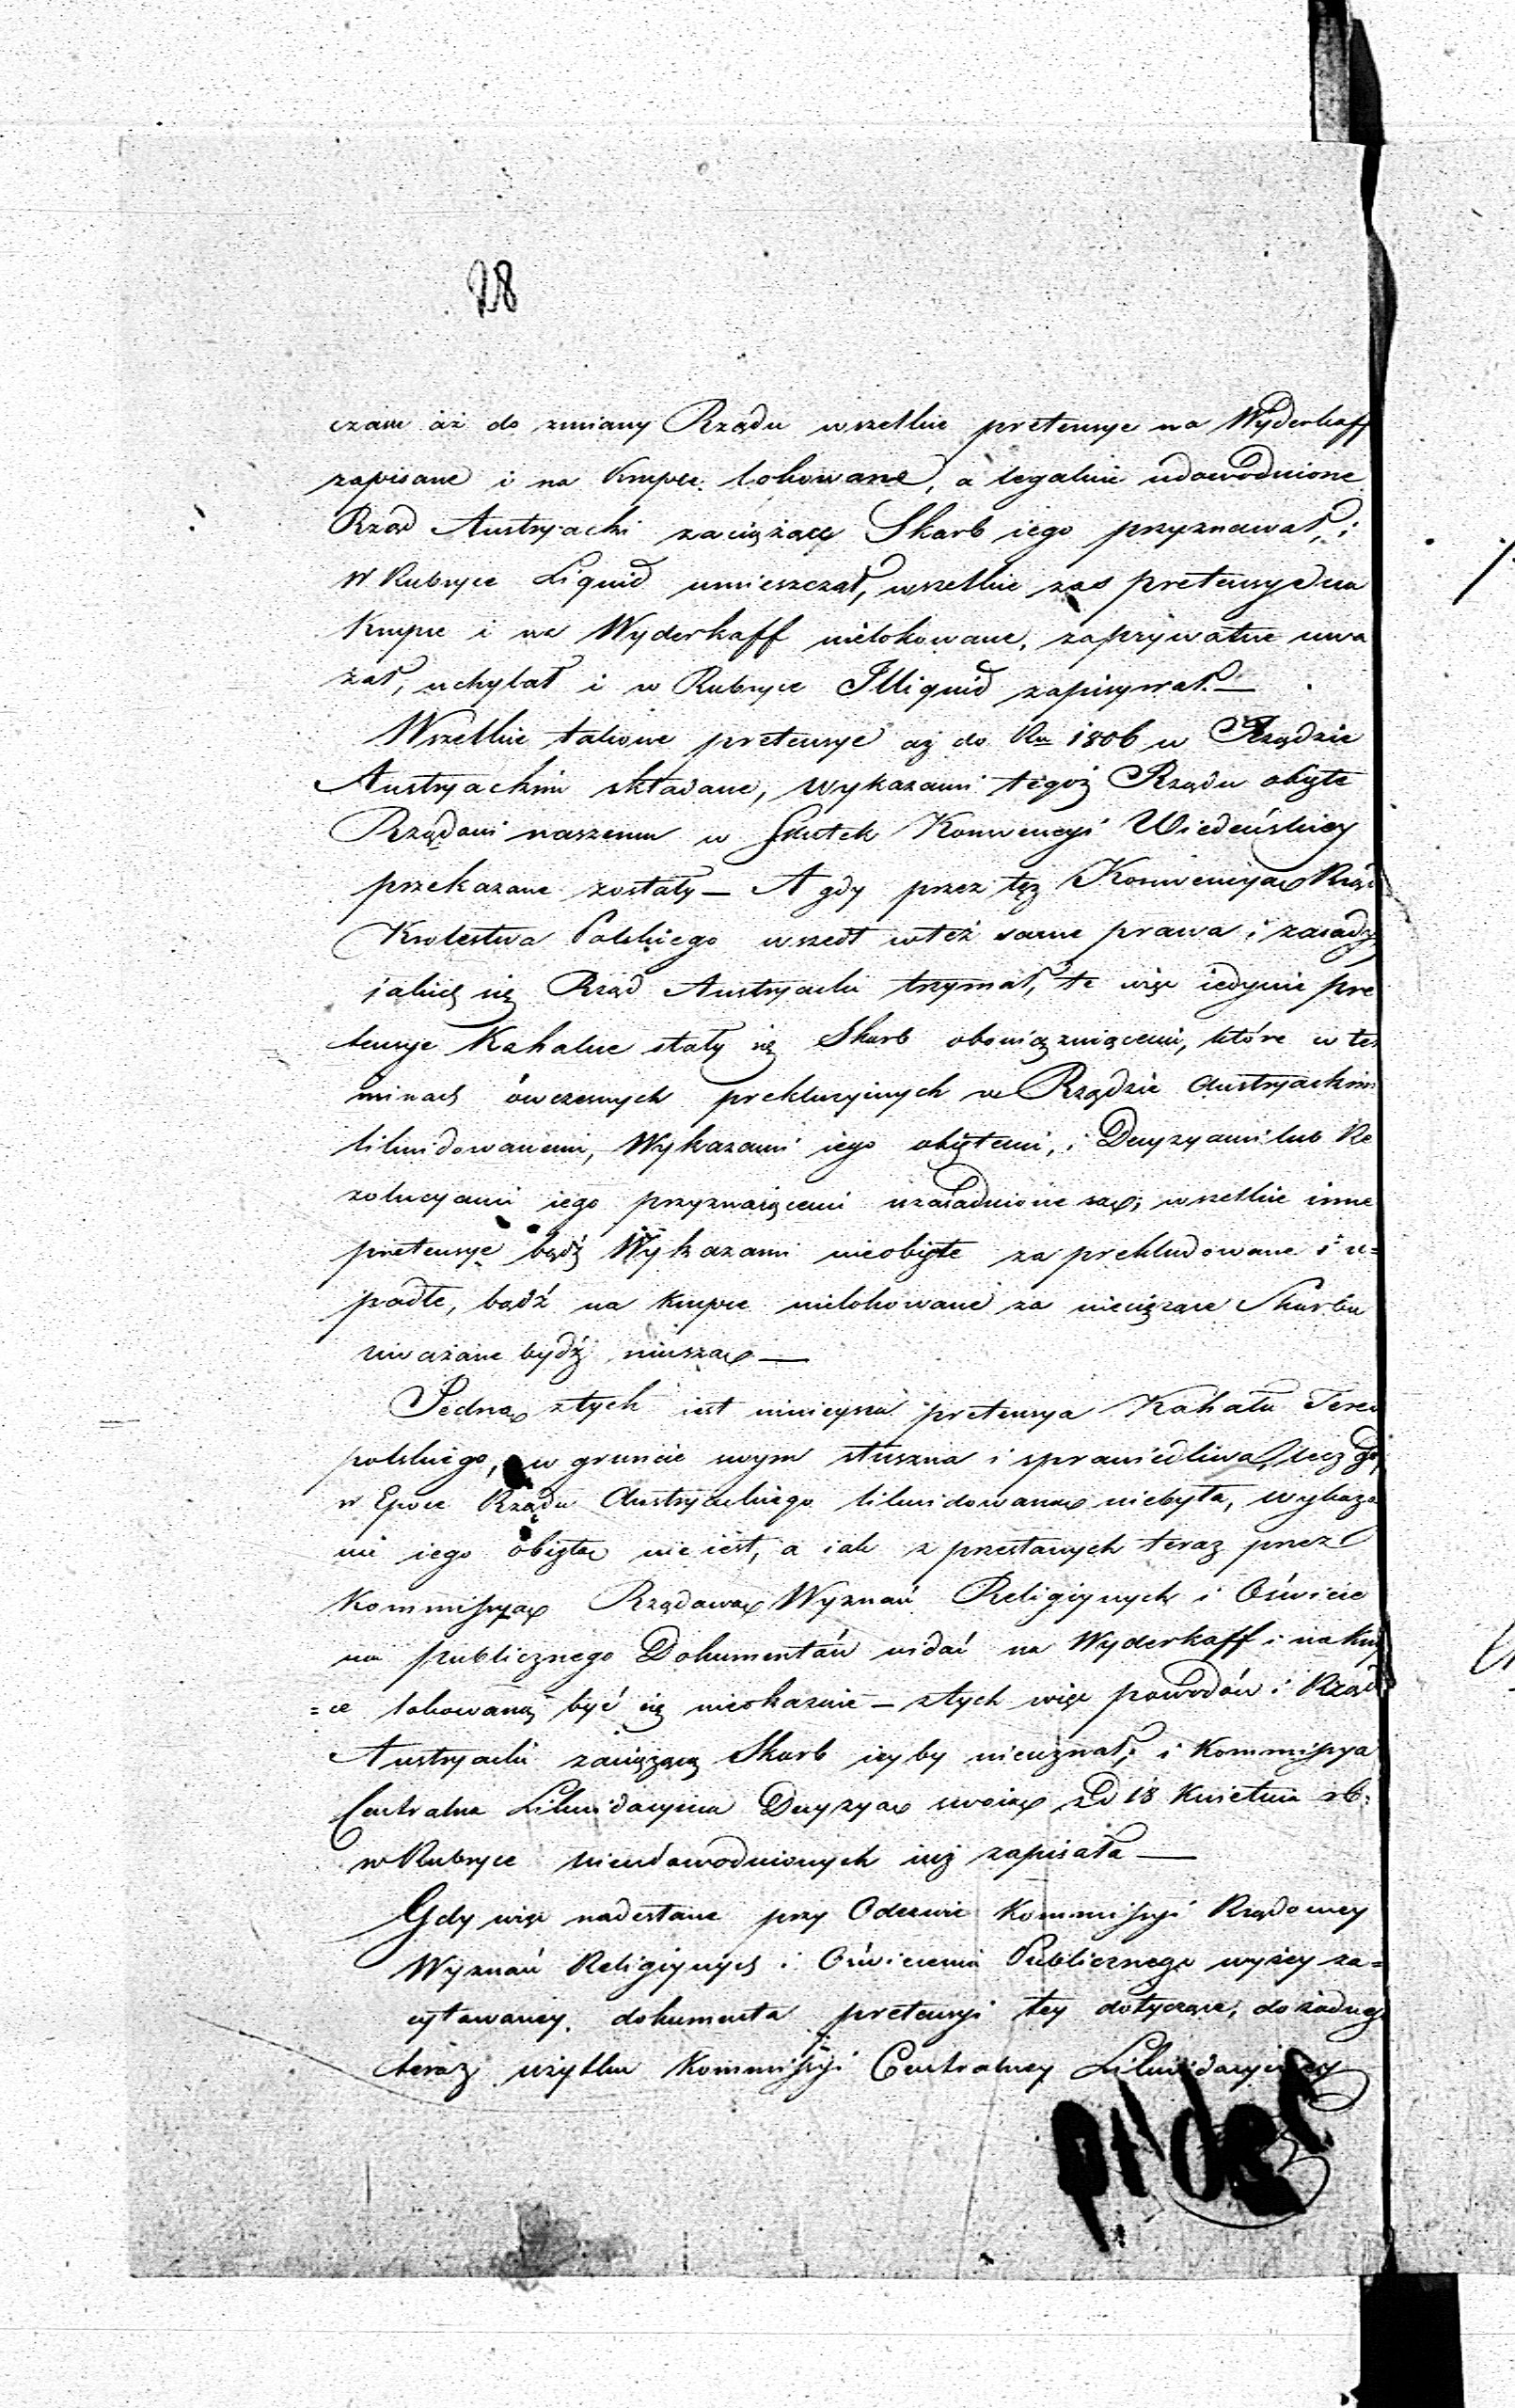 28
czasu aż do zmiany Rządu wszelkie pretensye na Wyderkaff
zapisane i na Krupce lokowane, a legalnie udowodnione
Rząd Austryacki zaciążące Skarb iego przyznawał, i
w Rubryce Liquid umieszczał, wszelkie zaś pretensye na
Krupce i na Wyderkaff nielokowane, za prywatne uwa
żał, uchylał i w Rubryce Illiquid zapisywał. —
Wszelkie takowe pretensye aż do Ru 1806 w Rządzie
Austryackim składane, wykazami tegoż Rządu obięte
Rządowi naszemu w Skutek Konwencyi Wiedeńskiey
przekazane zostały — A gdy przez tęż Konwencyą Rząd
Krolestwa Polskiego wszedł w też same prawa i zasady
iakich się Rząd Austryacki trzymał, te więc iedynie pre
tensye Kahalne stały się Skarb obowięzuiącemi, które w ter
minach ówczesnych prekluzyinych w Rządzie Austryackim
likwidowanemi, Wykazami iego obiętemi, i Decyzyami lub Re
zolucyami iego przyznaiącemi uzasadnione są; wszelkie inne
pretensye bądź Wykazami nieobięte za prekludowane i u=
padłe, bądź na Krupce nielokowane za nieciążące Skarbu
uważane bydź muszą —
Jedną z tych iest ninieysza pretensya Kahału Tere
polskiego, w gruncie swym słuszna i sprawiedliwa, lecz gdy
w Epoce Rządu Austryackiego likwidowaną niebyła, wykaza
mi iego obiętą nie iest, a iak z przesłanych teraz przez
Kommissyą Rządową Wyznań Religiynych i Oświece
nia publicznego Dokumentów widać na Wyderkaff i na Krup
=ce lokowaną być się nieokazuie — z tych więc powodów i Rząd
Austryacki zaciążącą Skarb iey by nieuznał, i Kommissya
Centralna Likwidacyina Decyzyą swoią z D 18 Kwietnia rb:
w Rubryce nieudowodnionych iuż zapisała —
Gdy więc nadesłane przy Odezwie Kommissyi Rządowey
Wyznań Religiynych i Oświecenia Publicznego wyżey za=
cytowaney dokumenta pretensyi tey dotyczące, do żadnego
teraz użytku Kommissyi Centralney Likwidacyiney